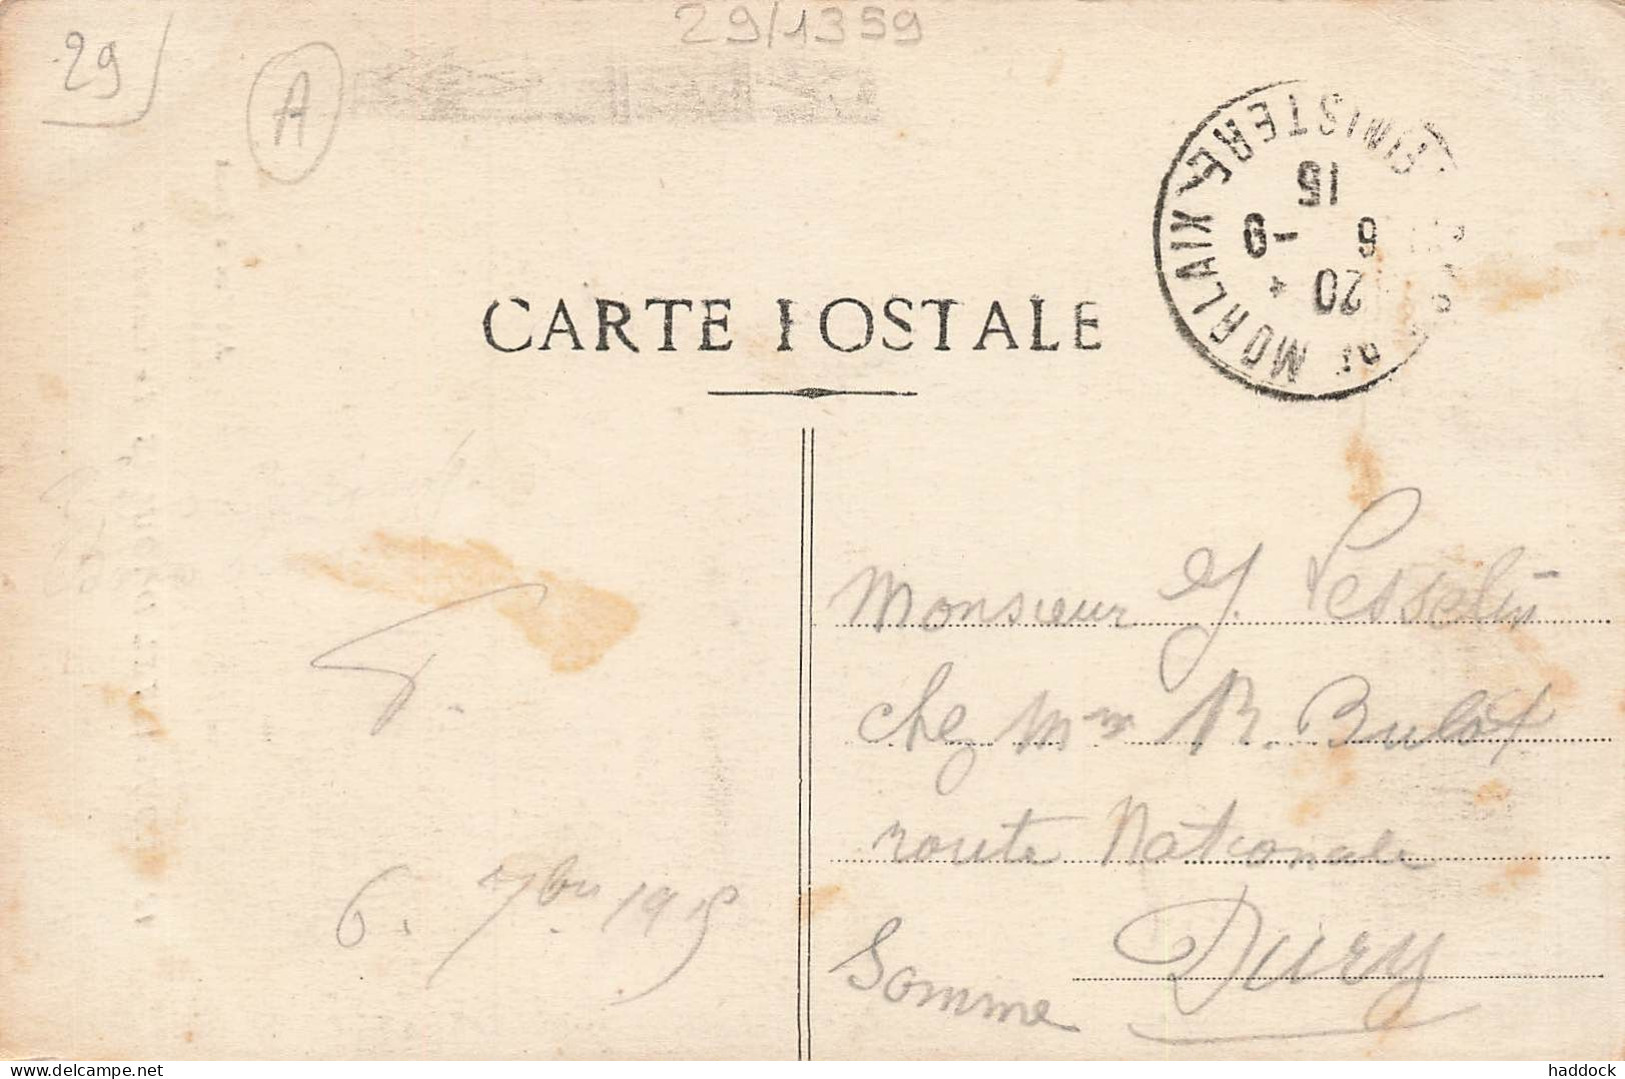 29
A
29/1359
MORLAIX
FINISTERE
20 6 -9 15
CARTE POSTALE
Monsieur J. Pesselin
chez Mme R. Bulot
route Nationale
Dury
Somme
6. 7bre 1915
delcampe.net
haddock